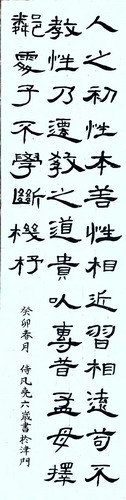 人之初性本善性相近習相遠苟不
教性乃遷教之道貴以專昔孟母擇
鄰處子不學斷機杼
癸卯春月 六歲書於津門